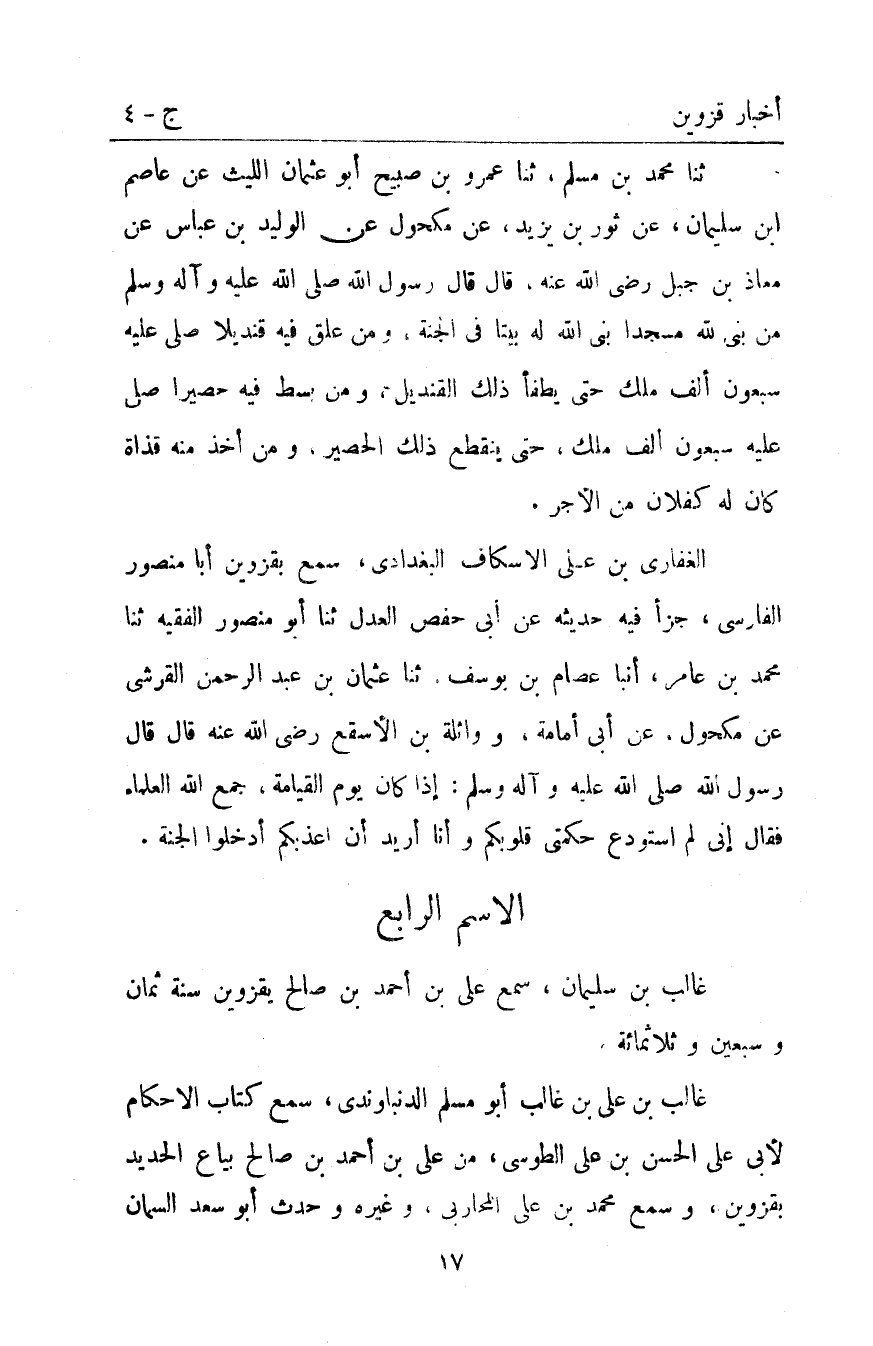 أخبار قزوين
ج - ٤
ثنا محمد بن مسلم ، ثنا عمرو بن صبيح أبو عثمان الليث عن عاصم
ابن سليمان ، عن ثور بن يزيد ، عن مكحول عن الوليد بن عباس عن
معاذ بن جبل رضى الله عنه . قال قال رسول الله صلى الله عليه و آله وسلم
من بنى لله مسجدا بنى الله له بيتا فى الجنة ، و من علق فيه قنديلا صلى عليه
سبعون ألف ملك حتى يطفأ ذلك القنديل ، و من بسط فيه حصيرا صلى
عليه سبعون ألف ملك ، حتى ينقطع ذلك الحصير . و من أخذ منه قذاة
كان له كفلان من الأجر .
الغفارى بن عـلى الاسكاف البغدادى ، سمع بقزوين أبا منصور
الفارسى ، جزأ فيه حديثه عن أبى حفص العدل ثنا أبو منصور الفقيه ثنا
محمد بن عامر ، أنبا عصام بن يوسف . ثنا عثمان بن عبد الرحمن القرشى
عن مكحول . عن أبى أمامة ، و واثلة بن الأسقع رضى الله عنه قال قال
رسول الله صلى الله عليه و آله وسلم : إذا كان يوم القيامة ، جمع الله العلماء
فقال إنى لم استودع حكمتى قلوبكم و أنا أريد أن اعذبكم أدخلوا الجنة .
الاسم الرابع
غالب بن سليمان ، سمع على بن أحمد بن صالح يقزوين سنة ثمان
و سبعين و ثلاثمائة .
غالب بن على بن غالب أبو مسلم الدنباوندى ، سمع كتاب الاحكام
لأبى على الحسن بن على الطوسى ، من على بن أحمد بن صالح بياع الحديد
بقزوين ، و سمع محمد بن على المحاربى ، و غيره و حدث أبو سعد السمان
١٧